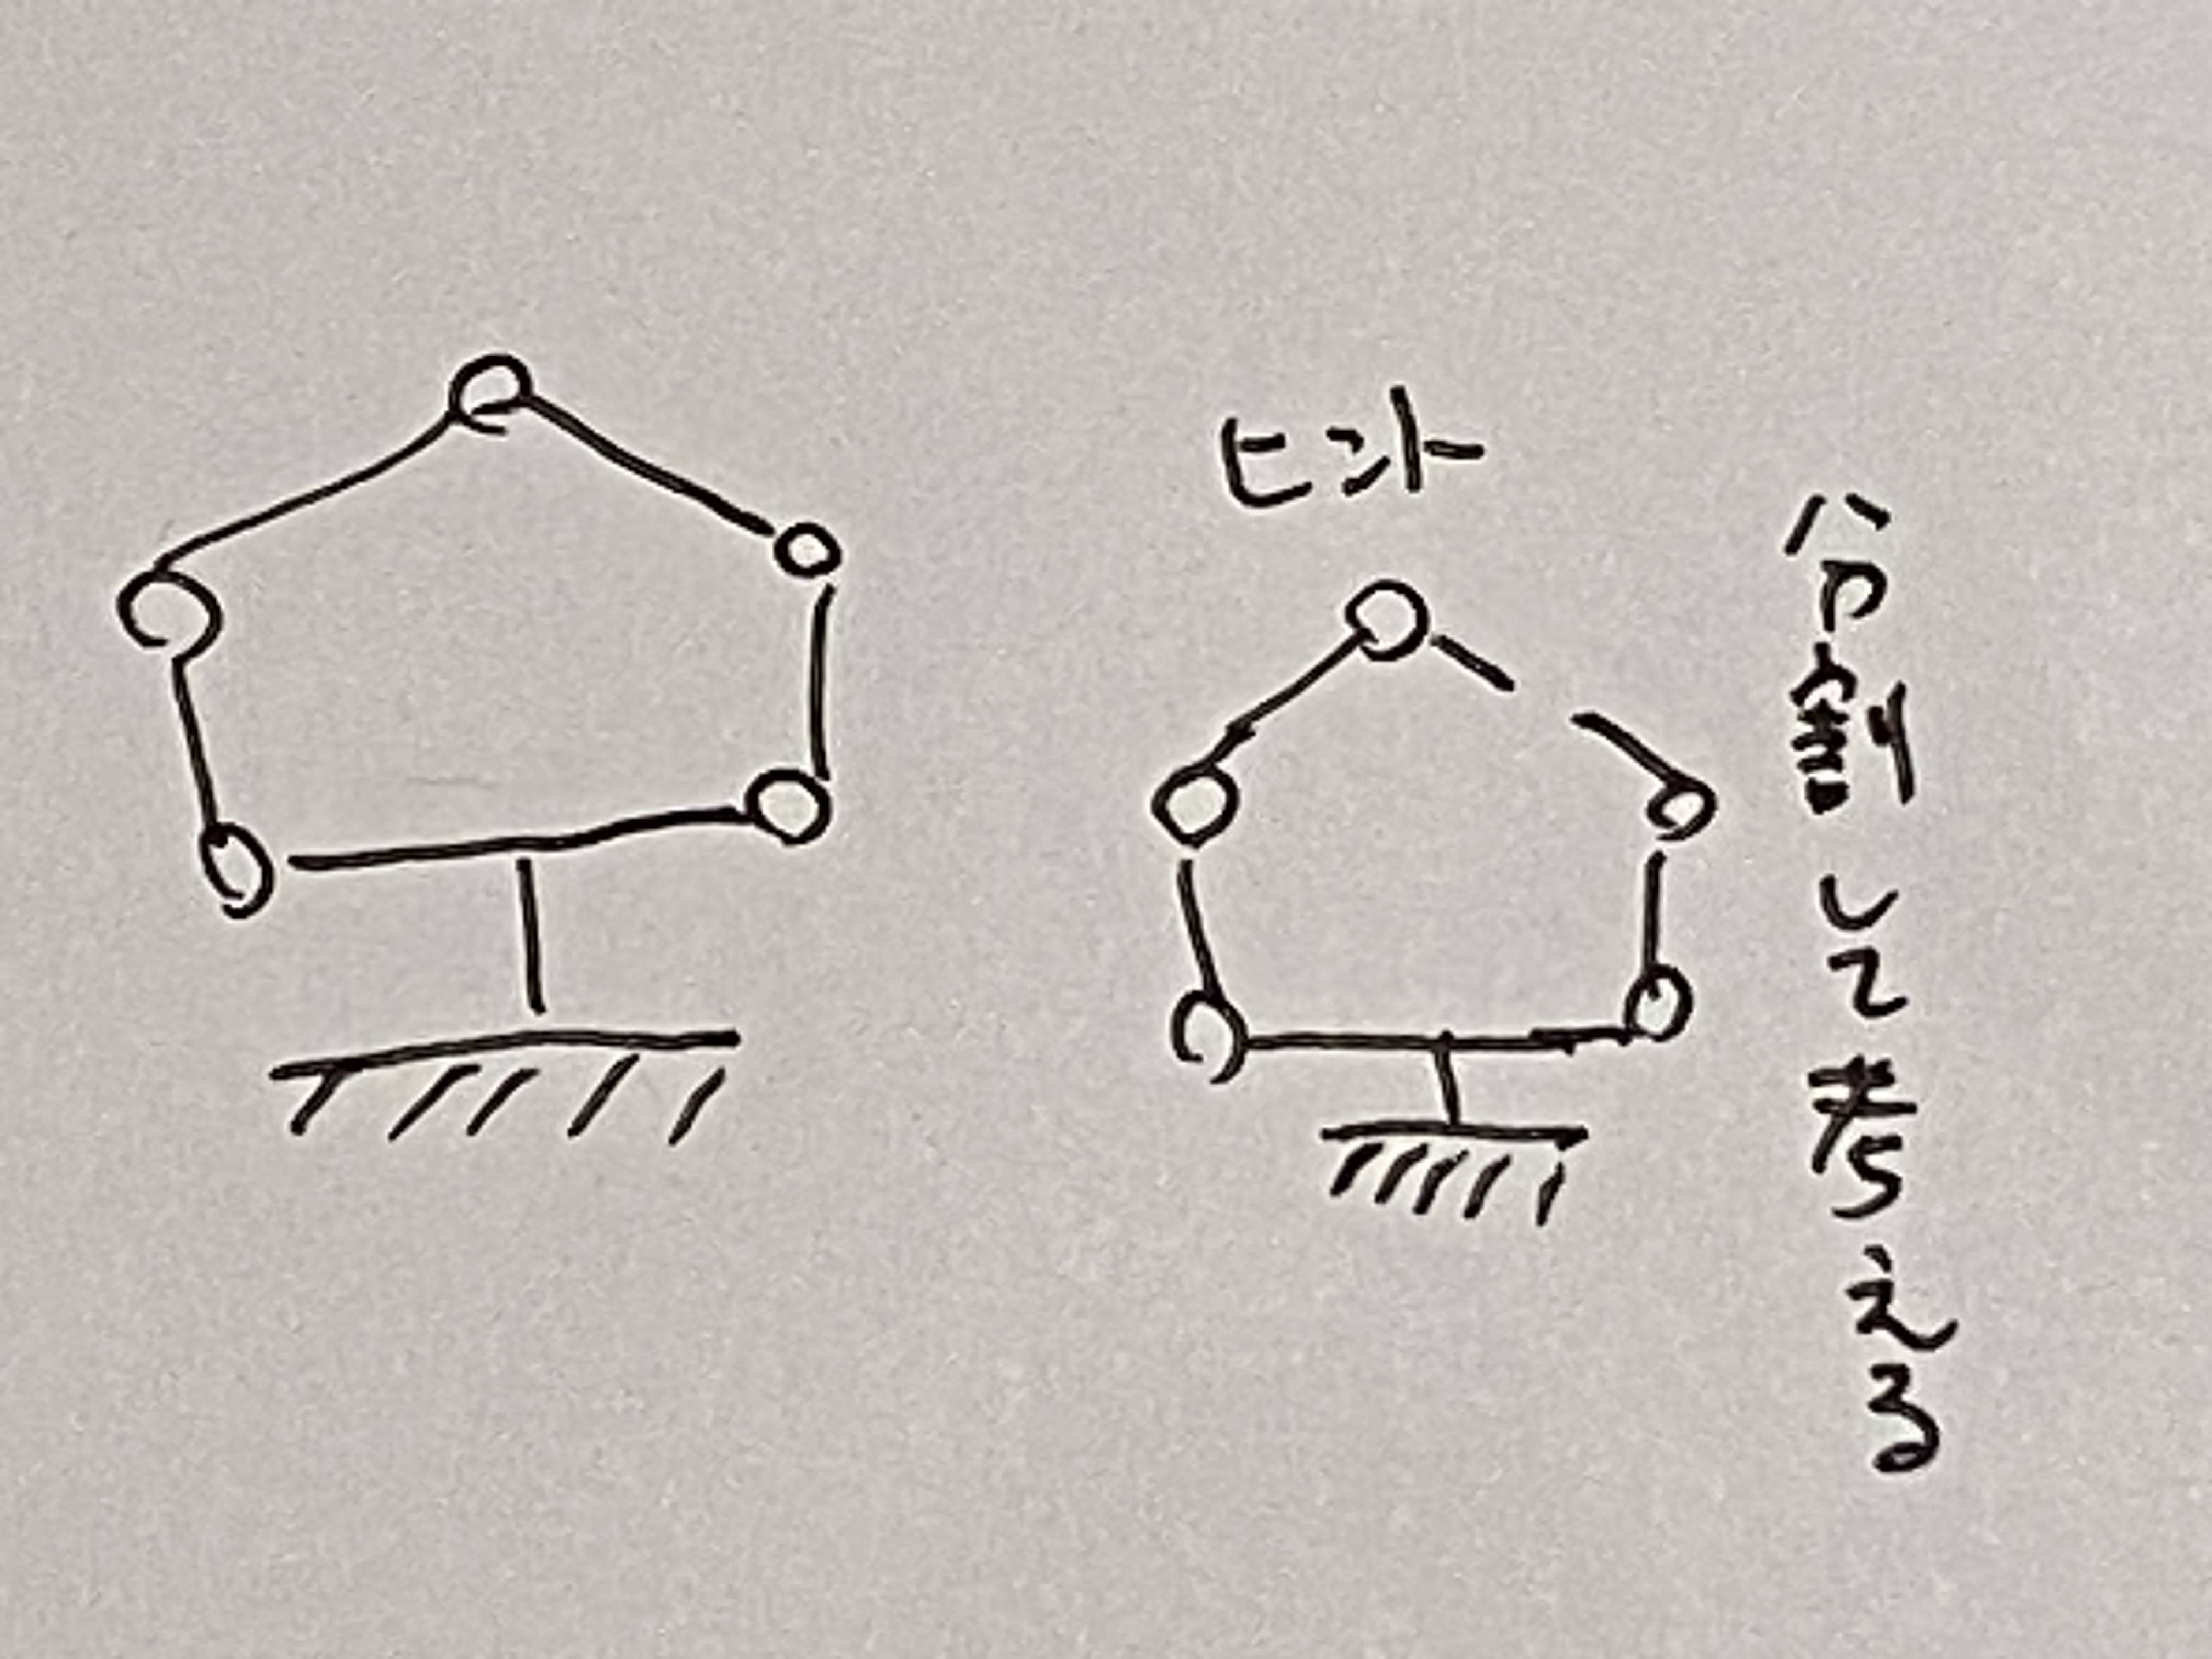 ヒント
分割して考える